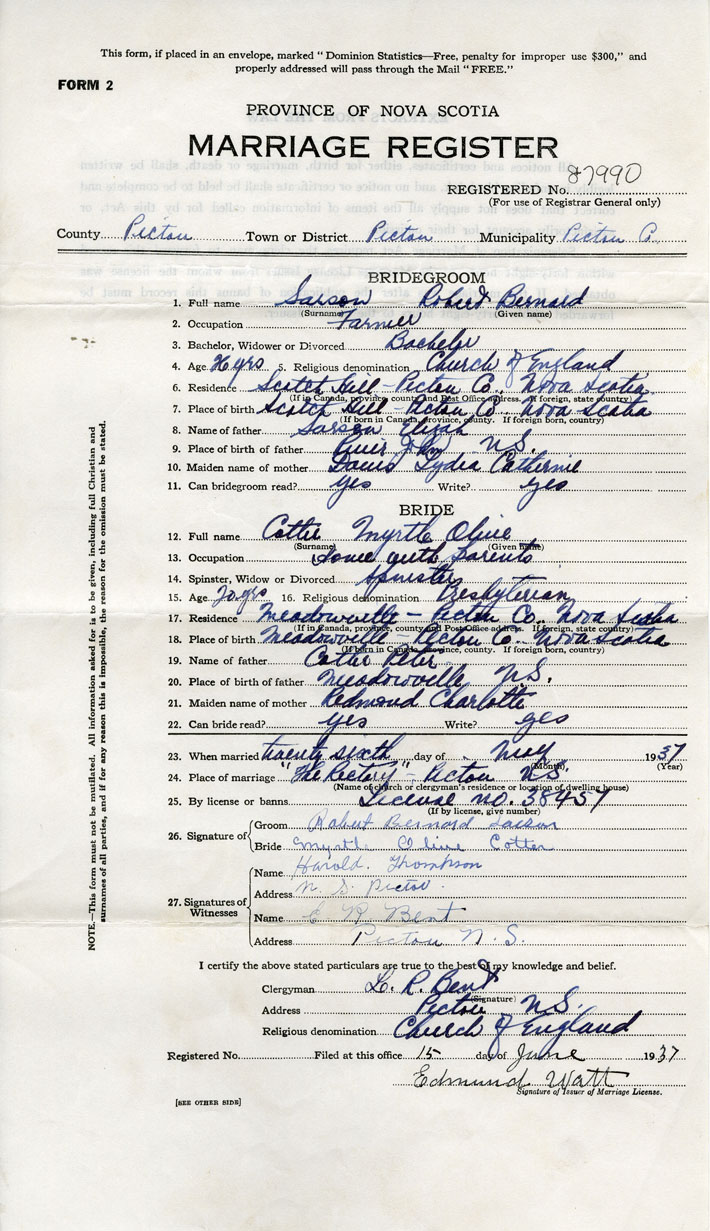 This form, if placed in an envelope, marked "Dominion Statistics—Free, penalty for improper use $300," and
properly addressed will pass through the Mail "FREE."
FORM 2
PROVINCE OF NOVA SCOTIA
MARRIAGE REGISTER
REGISTERED No. 87990
(For use of Registrar General only)
County Pictou Town or District Pictou Municipality Pictou C.
BRIDEGROOM
1. Full name Sarson Robert Bernard
(Surname) (Given name)
2. Occupation Farmer
3. Bachelor, Widower or Divorced Bachelor
4. Age 26 yrs 5. Religious denomination Church of England
6. Residence Scotch Hill - Pictou Co. Nova Scotia
(If in Canada, province, county and Post Office address. If foreign, state country)
7. Place of birth Scotch Hill - Pictou Co. Nova Scotia
(If born in Canada, province, county. If foreign born, country)
8. Name of father Sarson Elijah
9. Place of birth of father River John N.S.
10. Maiden name of mother Lydia Catherine
11. Can bridegroom read? yes Write? yes
BRIDE
12. Full name Cotter Myrtle Olive
(Surname) (Given name)
13. Occupation Home with parents
14. Spinster, Widow or Divorced Spinster
15. Age 20 yrs 16. Religious denomination Presbyterian
17. Residence Meadowville - Pictou Co. Nova Scotia
(If in Canada, province, county and Post Office address. If foreign, state country)
18. Place of birth Meadowville - Pictou Co. Nova Scotia
(If born in Canada, province, county. If foreign born, country)
19. Name of father Cotter Peter
20. Place of birth of father Meadowville N.S.
21. Maiden name of mother Redmond Charlotte
22. Can bride read? yes Write? yes
23. When married twenty sixth day of May 1937
(Month) (Year)
24. Place of marriage "The Rectory" - Pictou N.S.
(Name of church or clergyman's residence or location of dwelling house)
25. By license or banns License no. 38457
(If by license, give number)
26. Signature of
Groom Robert Bernard Sarson
Bride Myrtle Olive Cotter
27. Signatures of Witnesses
Name Harold Thompson
Address N. S. Pictou
Name R Bent
Address Pictou N. S.
I certify the above stated particulars are true to the best of my knowledge and belief.
Clergyman L. R. Bent
(Signature)
Address Pictou N.S.
Religious denomination Church of England
Registered No. Filed at this office 15 day of June 1937
Edmund Watt
Signature of Issuer of Marriage License.
[SEE OTHER SIDE]
NOTE.—This form must not be mutilated. All information asked for is to be given, including full Christian and
surnames of all parties, and if for any reason this is impossible, the reason for the omission must be stated.